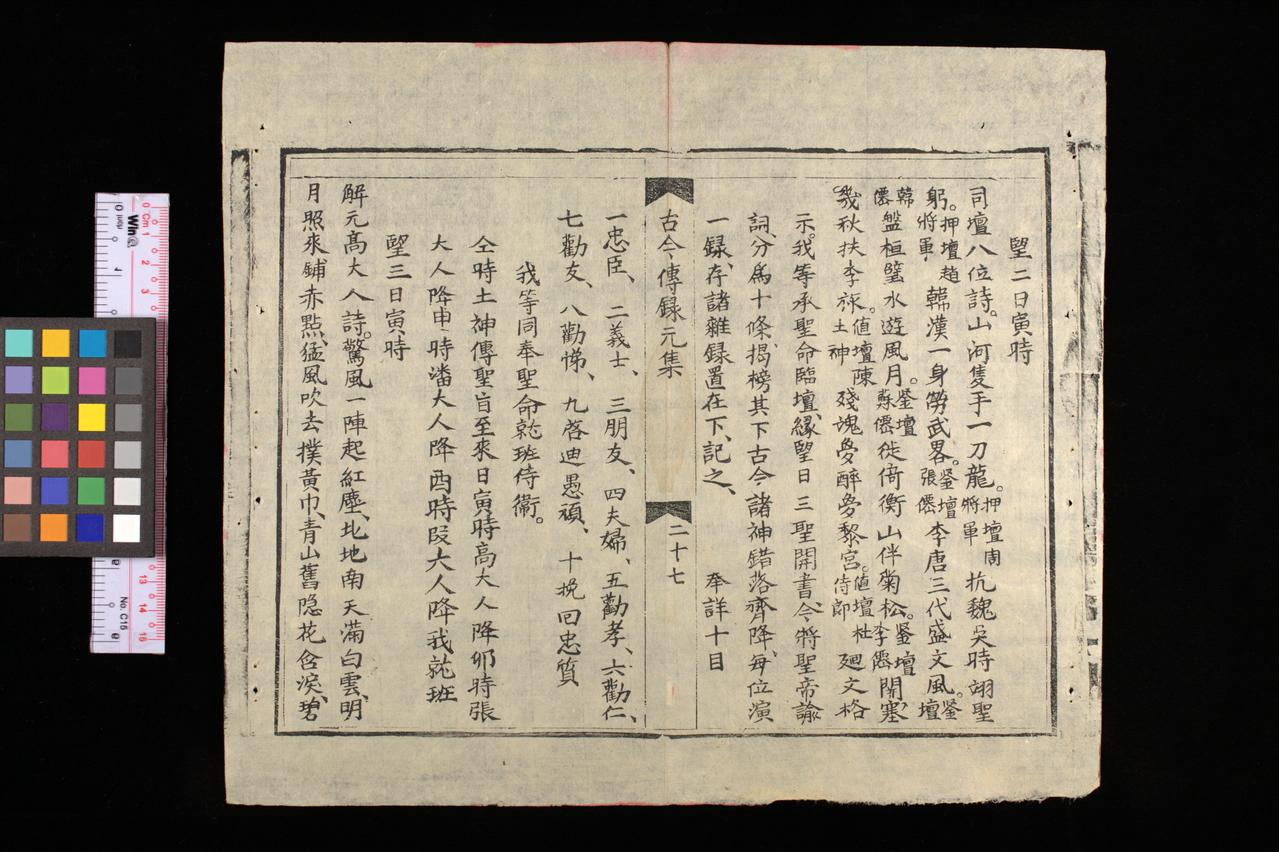 望二日寅時
司壇八位詩。山河隻手一刀龍。押壇周將軍 抗魏吳時翊聖
躬。押壇趙將軍 韓漢一身勞武畧。鉴壇張僊 李唐三代盛文風。鉴壇
韓僊 盤桓璧水遊風月。鉴壇蘇僊 徙倚衡山伴菊松。鉴壇李僊 開塞
幾秋扶李祚。值壇陳土神 殘魂受醉旁黎宮。值壇杜侍郎 廻文格
示。我等承聖命臨壇、緣望日三聖開書、今將聖帝諭
詞、分爲十條、揭榜其下、古今諸神錯落齊降、每位演
一錄、存諸雜錄置在下、記之、 奉詳十目
古今傳録元集 二十七
一忠臣、二義士、三朋友、四夫婦、五勸孝、六勸仁、
七勸友、八勸悌、九啓迪愚頑、十挽回忠質
我等同奉聖命就班侍衛。
仝時土神傳聖旨至來日寅時高大人降卯時張
大人降申時潘大人降酉時段大人降我就班
望三日寅時
解元高大人詩。驚風一陣起紅塵、北地南天滿白雲、明
月照來鋪赤點、猛風吹去撲黃巾、青山舊隐花含淚、碧
Win
Cm
No. C15